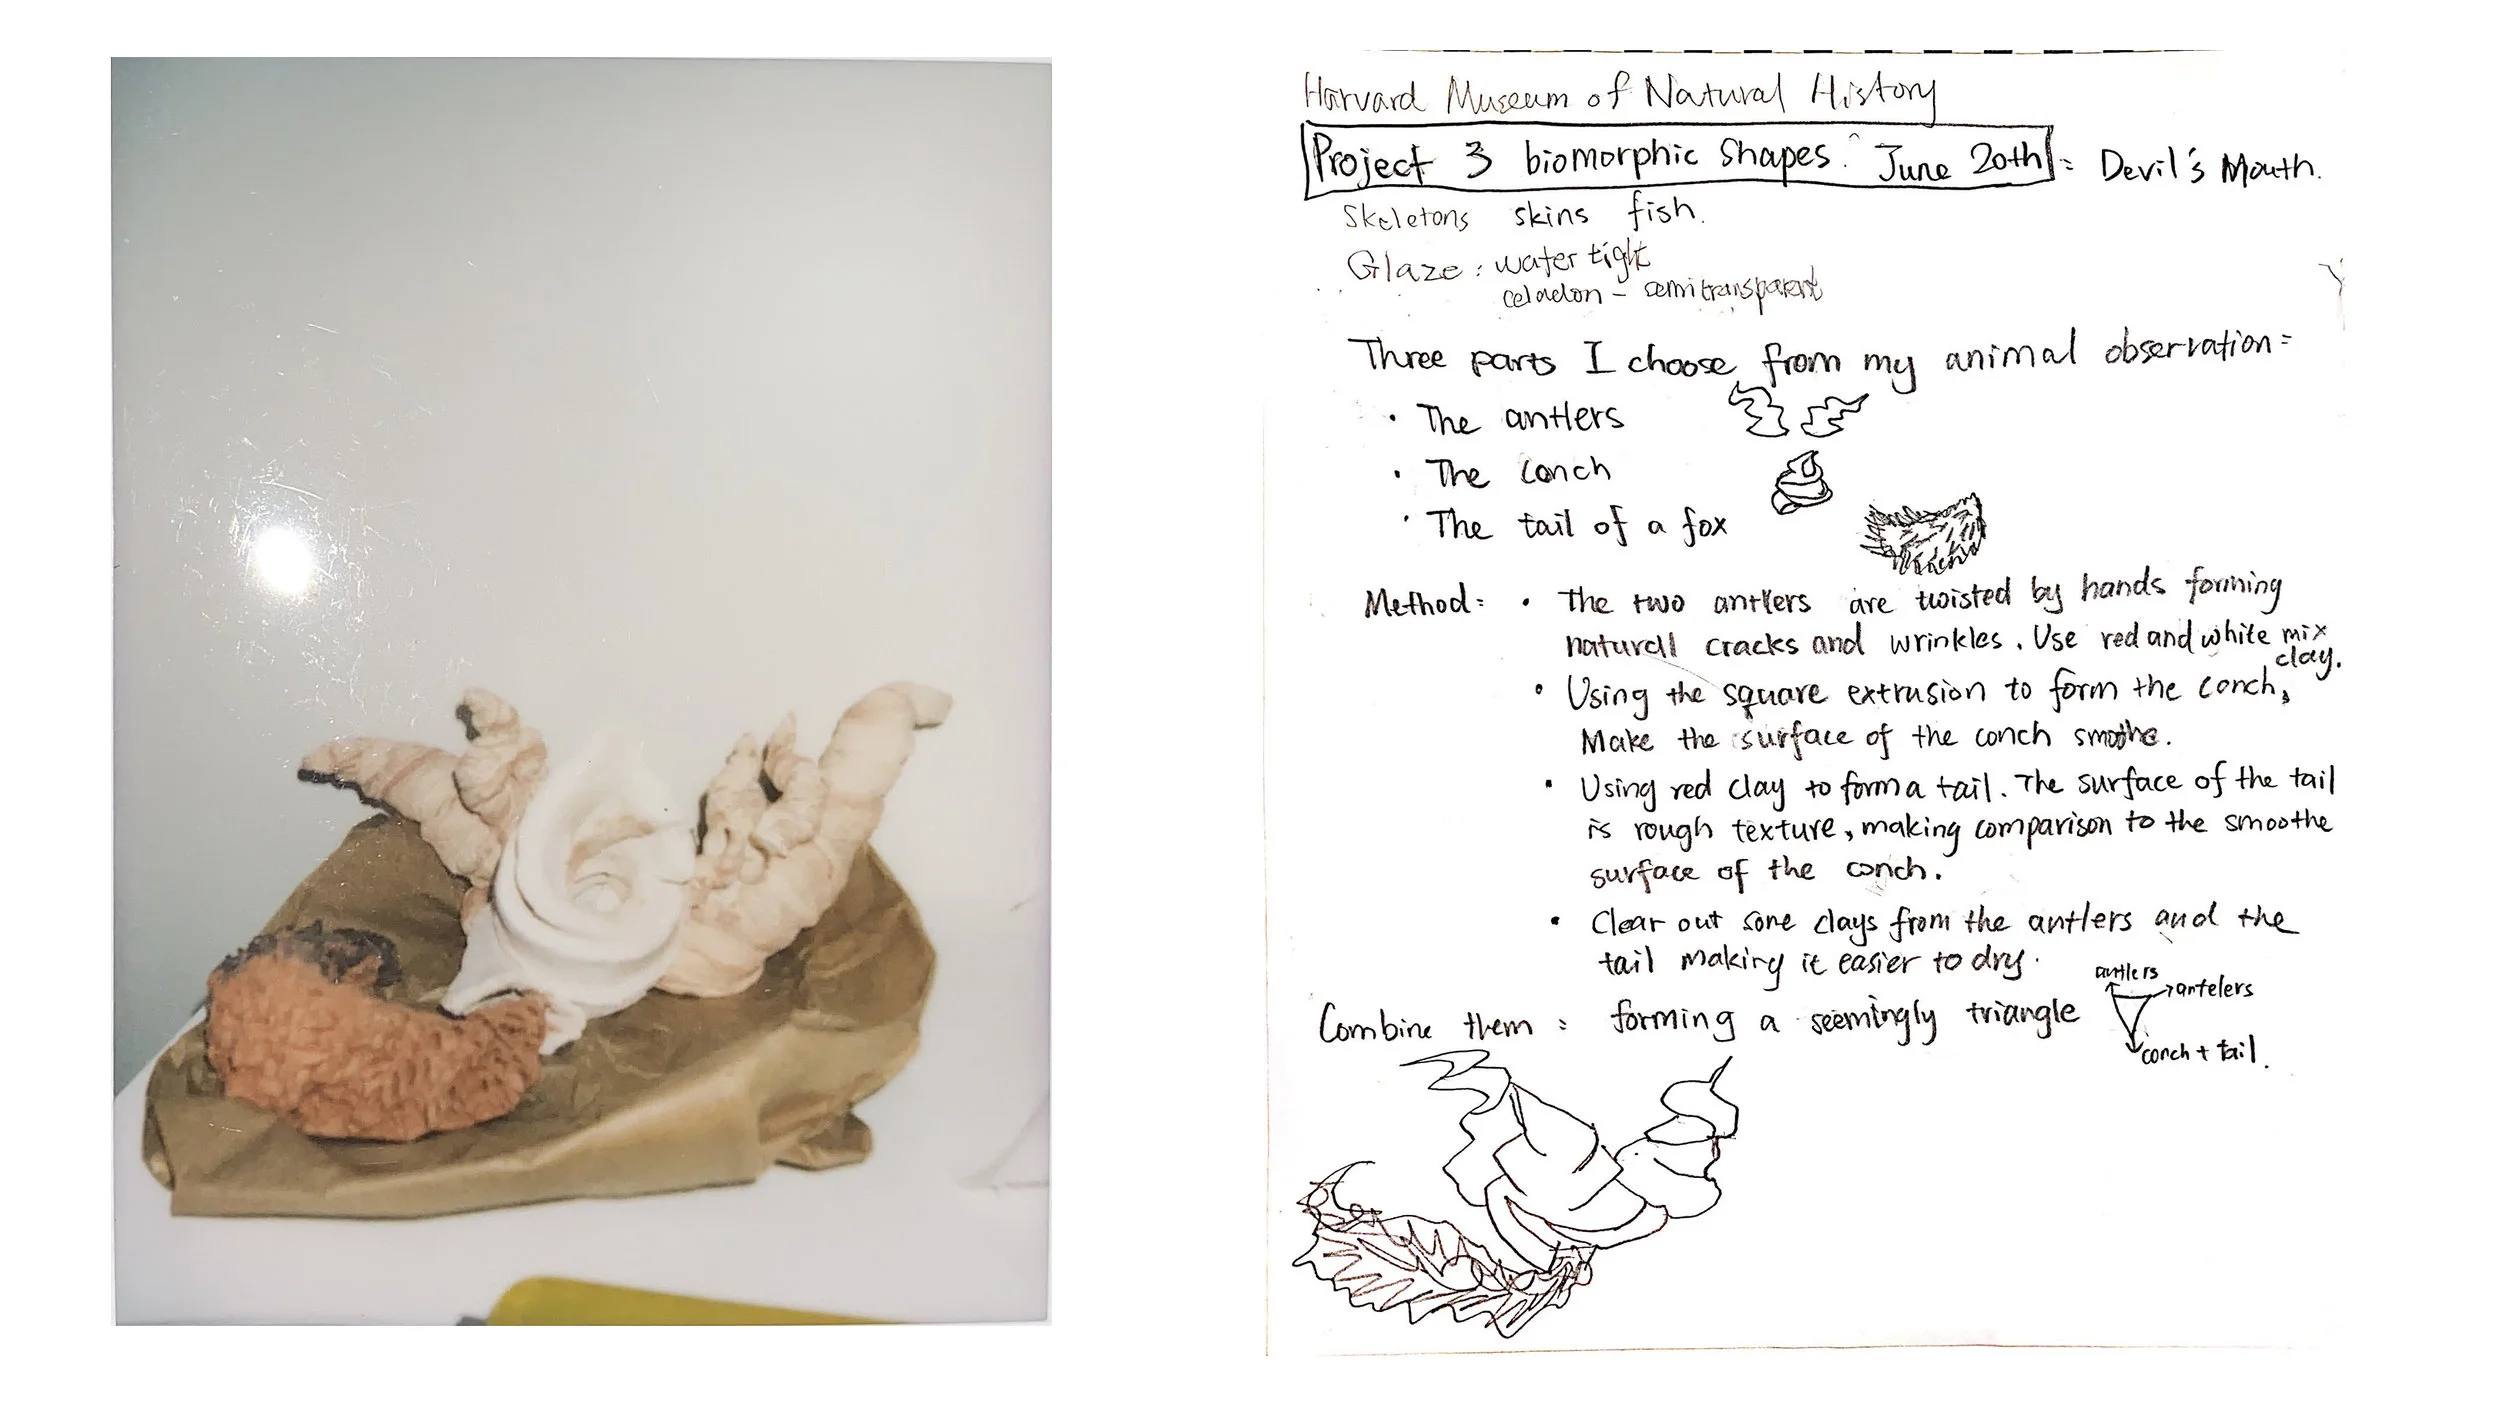 Harvard Museum of Natural History
Project 3 biomorphic shapes. June 20th : Devil's Mouth.
Skeletons skins fish.
Glaze : water tight
celadon - semitransparent
Three parts I choose from my animal observation:
· The antlers
· The conch
· The tail of a fox
Method: · The two antlers are twisted by hands forming
naturall cracks and wrinkles. Use red and white mix
clay.
· Using the square extrusion to form the conch,
Make the surface of the conch smoothe.
· Using red clay to form a tail. The surface of the tail
is rough texture, making comparison to the smoothe
surface of the conch.
· Clear out some clays from the antlers and the
tail making it easier to dry.
antlers
antelers
Combine them : forming a seemingly triangle
conch + tail.